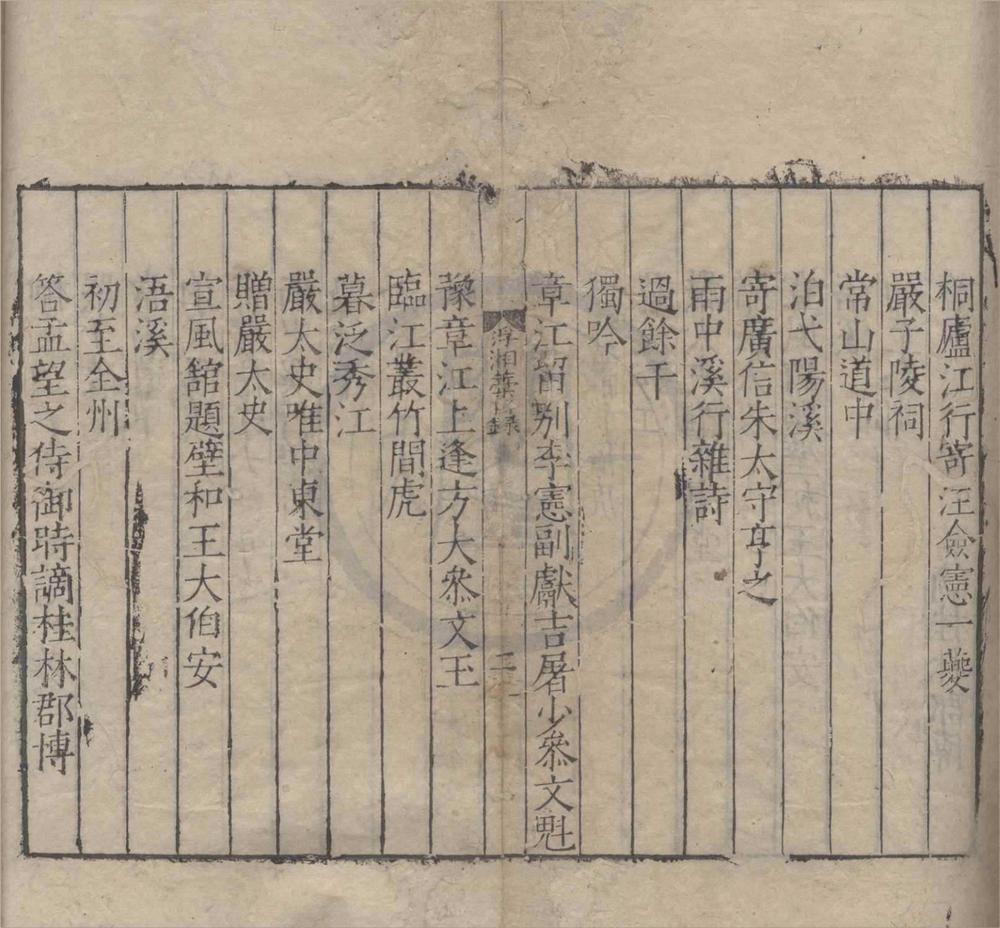 桐廬江行寄汪僉憲一夔
嚴子陵祠
常山道中
泊弋陽溪
寄廣信朱太守亨之
雨中溪行雜詩
過餘干
獨吟
章江留別李憲副獻吉屠少叅文魁
浮湘藁目錄
二
豫章江上逢方大叅文玉
臨江叢竹間虎
暮泛秀江
嚴太史唯中東堂
贈嚴太史
宣風舘題壁和王大伯安
浯溪
初至全州
答孟望之侍御時謫桂林郡博